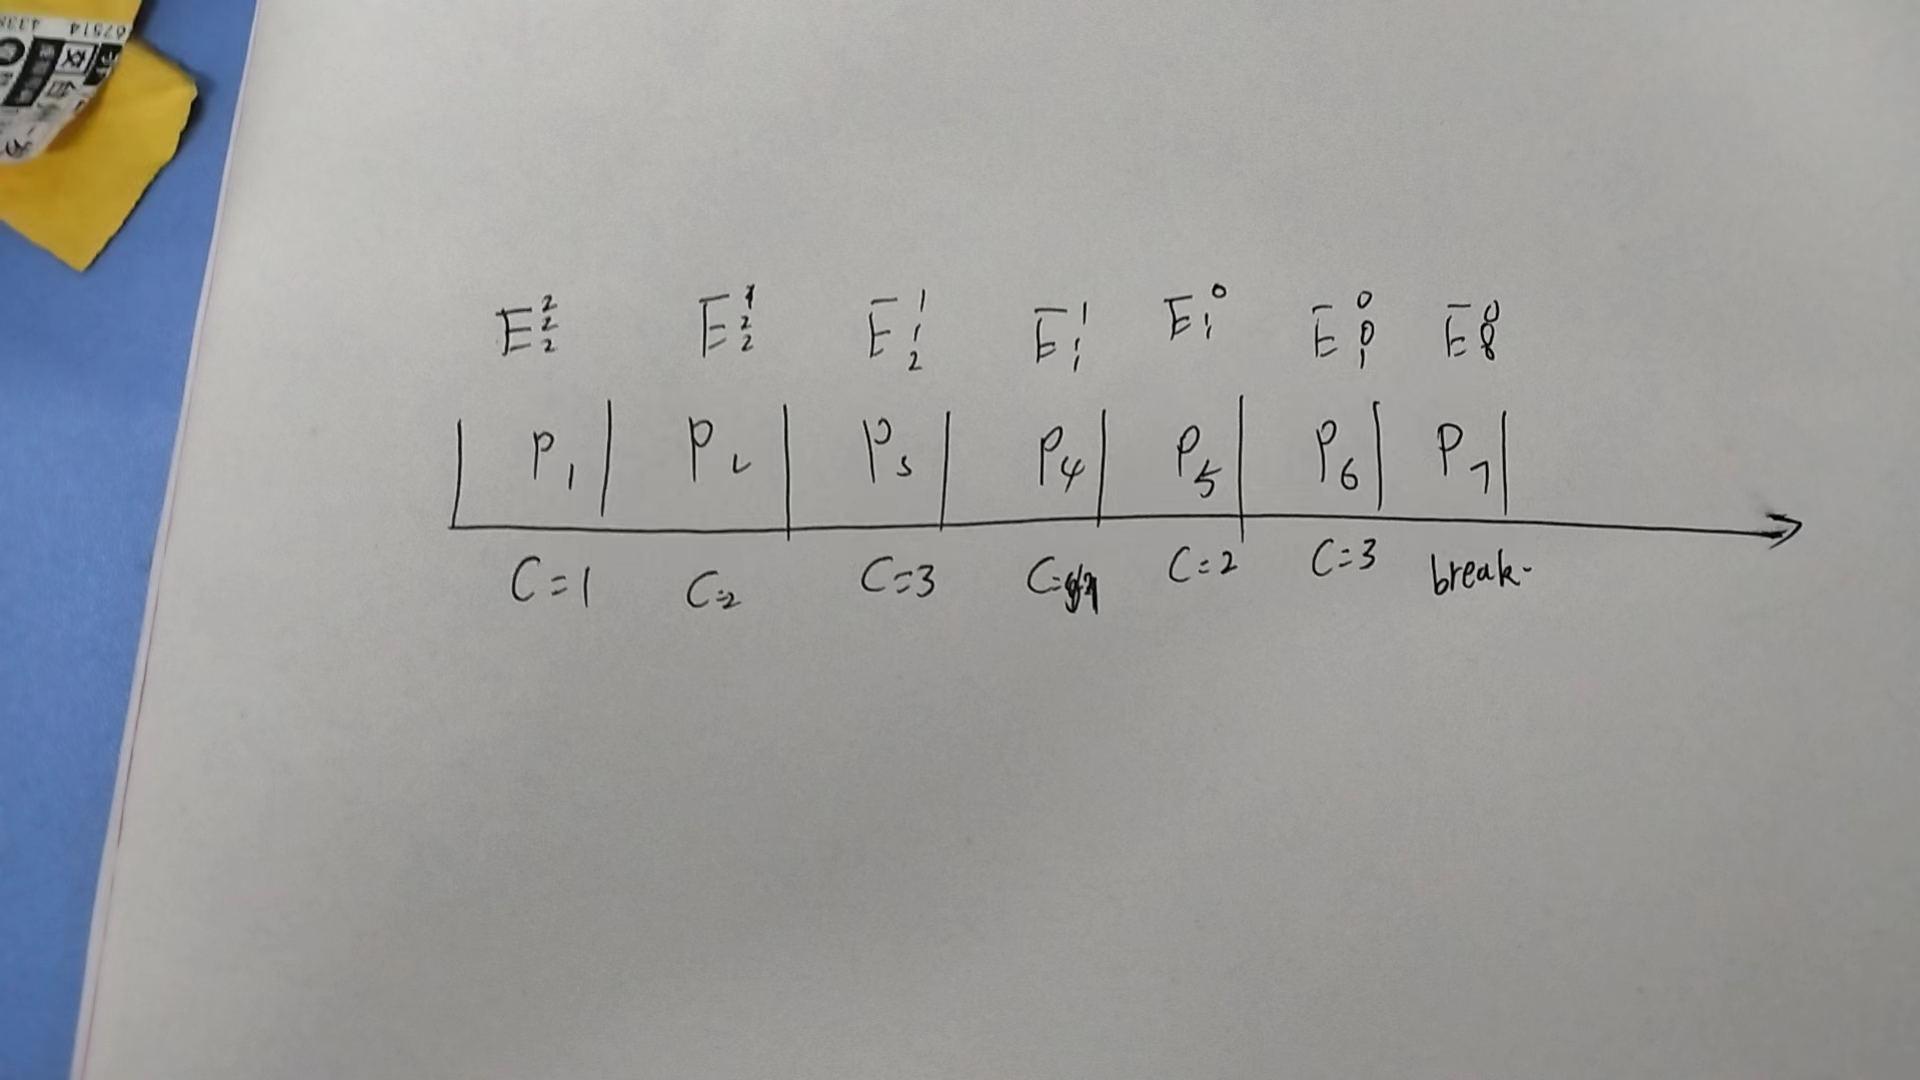 67514
E 2 2 2 E 1 2 2 E 1 1 2 E 1 1 1 E 0 1 E 0 0 1 E 0 0
P1 P2 P3 P4 P5 P6 P7
C=1 C=2 C=3 C= C=2 C=3 break.